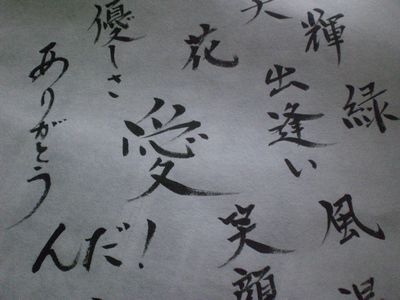 優しさ
ありがとう
花
輝
出逢い
緑
愛
んだ！
笑顔
風